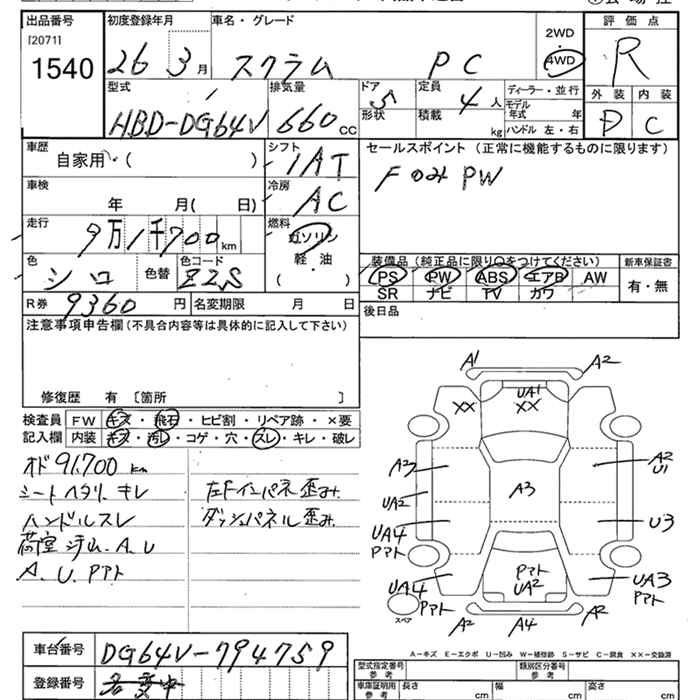 出品番号
[2071]
1540
初度登録年月
26 3月
車名・グレード
スクラム PC
2WD
4WD
評価点
R
型式
HBD-DG64V
排気量
660cc
ドア
5
形状
定員
4人
積載
kg
ディーラー・並行
モデル年式 年
ハンドル 左・右
外装 内装
D C
車歴
自家用・( )
シフト
IAT
セールスポイント (正常に機能するものに限ります)
Fのみ PW
車検
年 月( 日)
冷房
AC
走行
9万1千700km
燃料
ガソリン
軽・油
( )
色
シロ
色替
色コード
Z2S
装備品(純正品に限り○をつけてください)
新車保証書
PS PW ABS エアB AW
SR ナビ TV カワ
有・無
R券 9360円
名変期限 月 日
後日品
注意事項申告欄(不具合内容等は具体的に記入して下さい)
修復歴 有 〔箇所 〕
検査員記入欄
FW キズ・飛石・ヒビ割・リペア跡・×要
内装 キズ・汚レ・コゲ・穴・スレ・キレ・破レ
オド91,700km
シートヘタリ、キレ
ハンドルスレ
荷室汚レ.A.U
A.U.Pアト
左Fインパネ歪み
ダッシュパネル歪み
A1 A2
XX
UA1
XX
A3
A2
U1
UA2
A3
UA4
Pアト
U3
UA4
Pアト
Pアト
UA2
UA3
Pアト
スペア
A2 A4 A2
A-キズ E-エクボ U-凹み W-補修跡 S-サビ C-腐食 XX-交換済
車台番号
DG64V-794759
登録番号
名変中
型式指定番号
参考
類別区分番号
参考
車庫証明用
参考
長さ cm
幅 cm
高さ cm